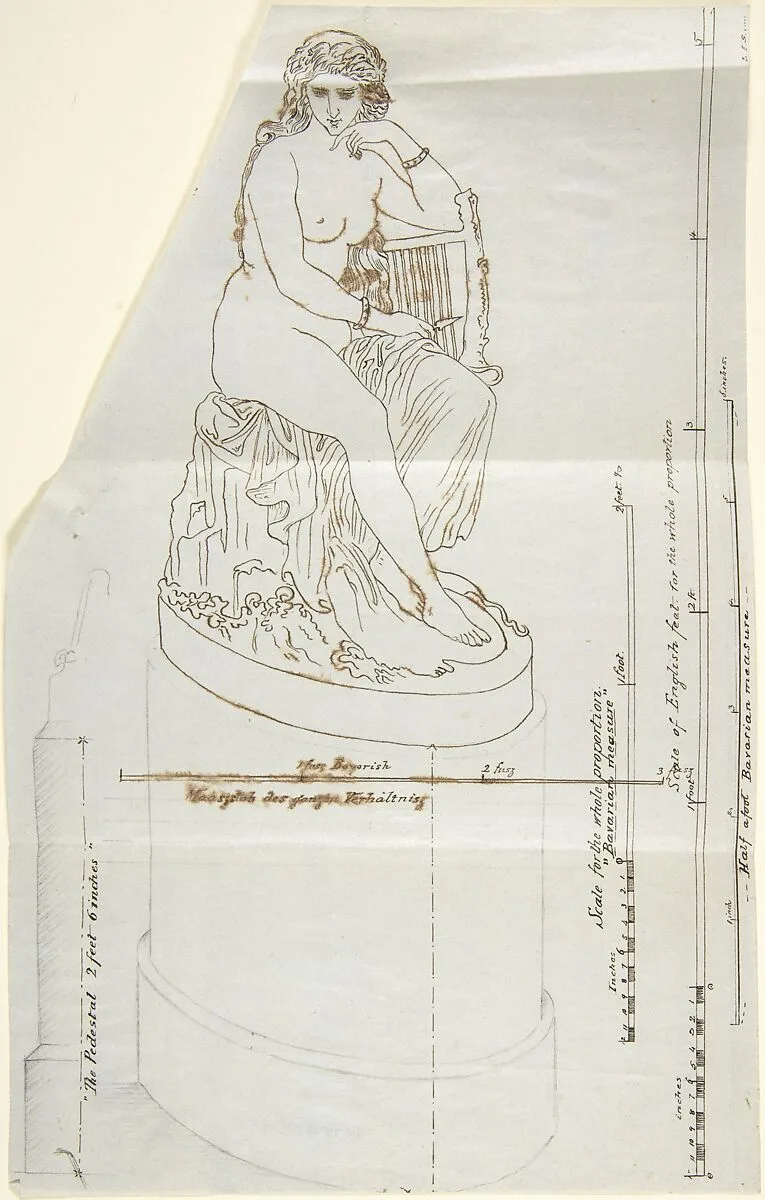 1 fusz Bayorish
2 fusz
3
Maasstab des ganzen Verhältnisz
"The Pedestal 2 feet 6 inches"
Scale for the whole proportion.
"Bavarian measure"
Inches
12 11 10 9 8 7 6 5 4 3 2 1 0
1 foot.
2 feet.
Scale of English feet for the whole proportion
inches
11 10 9 8 7 6 5 4 3 2 1 0
1 foot
2 ft
3
4
5
-- Half a foot Bavarian measure --
1 inch
2
3
4
5
6 inches.